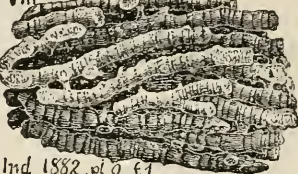 Ind 1882. pl 9. f 1